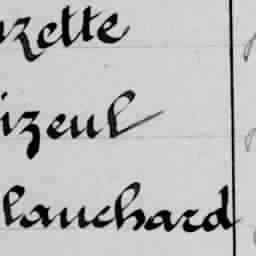 uzette
izeul
lanchard